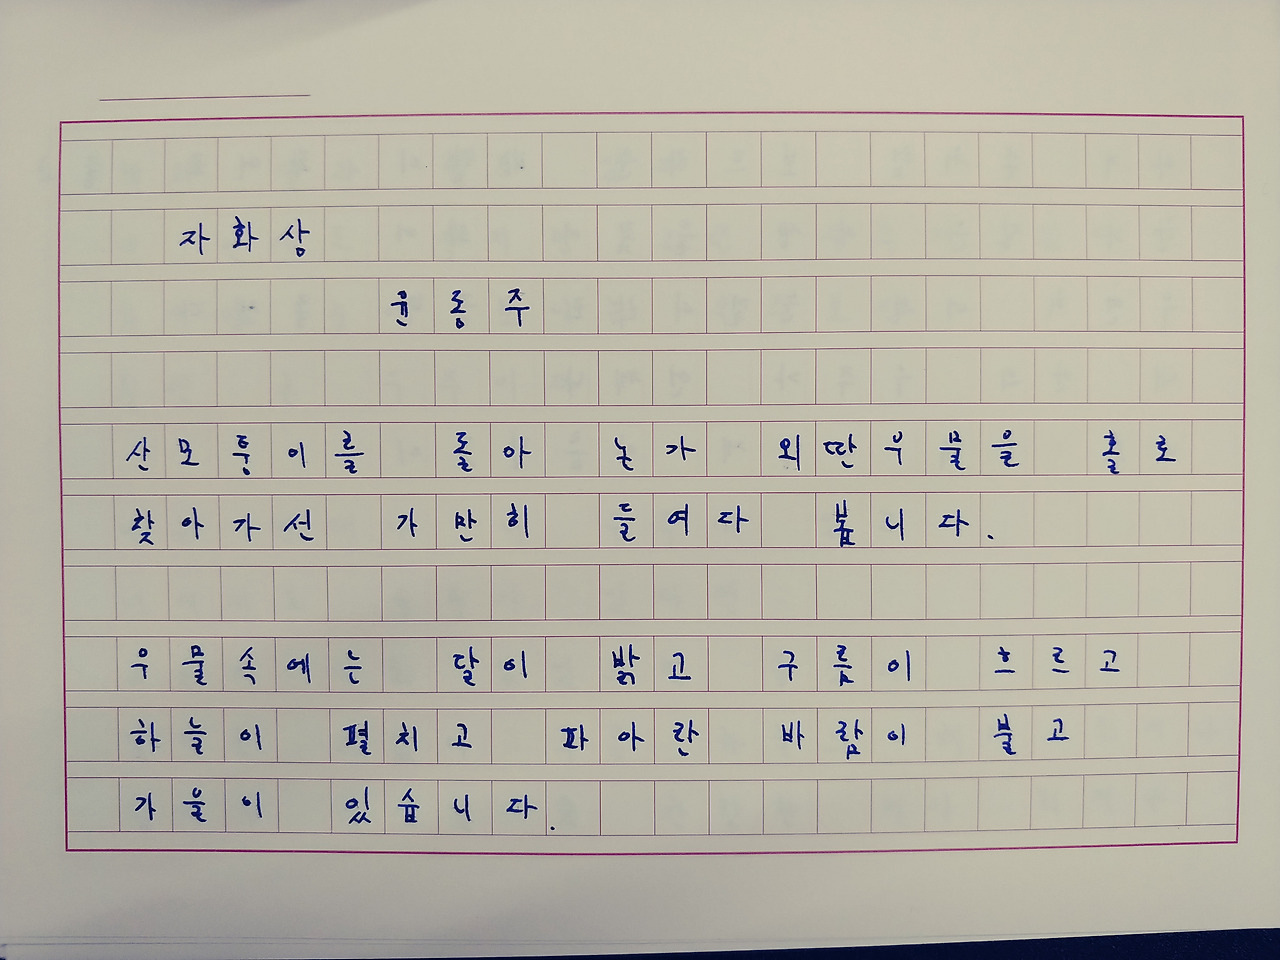 자화상
윤동주
산모퉁이를 돌아 논가 외딴우물을 홀로
찾아가선 가만히 들여다 봅니다.
우물속에는 달이 밝고 구름이 흐르고
하늘이 펼치고 파아란 바람이 불고
가을이 있습니다.